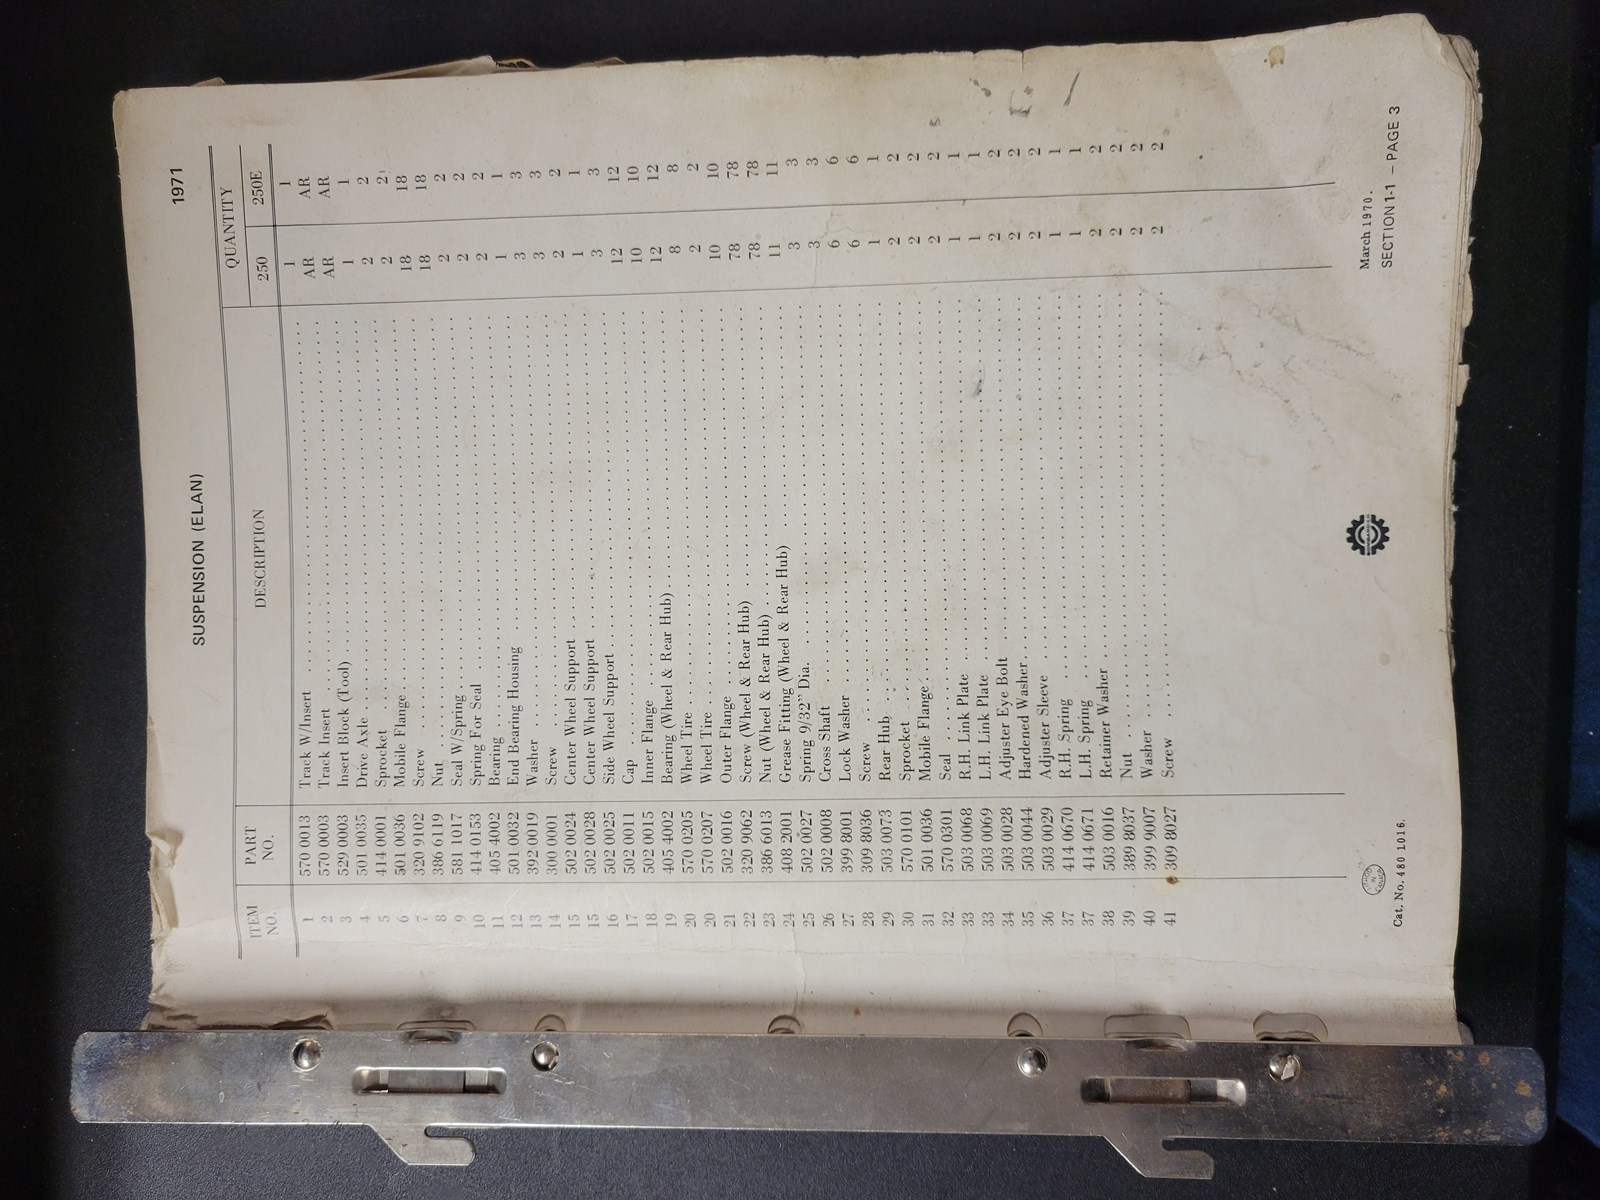 1971
SUSPENSION (ELAN)
ITEM NO. PART NO. DESCRIPTION QUANTITY
250 250E
1 570 0013 Track W/Insert 1 1
2 570 0003 Track Insert AR AR
3 529 0003 Insert Block (Tool) AR AR
4 501 0035 Drive Axle 1 1
5 414 0001 Sprocket 2 2
6 501 0036 Mobile Flange 2 2
7 320 9102 Screw 18 18
8 386 6119 Nut 18 18
9 581 1017 Seal W/Spring 2 2
10 414 0153 Spring For Seal 2 2
11 405 4002 Bearing 2 2
12 501 0032 End Bearing Housing 1 1
13 392 0019 Washer 3 3
14 300 0001 Screw 3 3
15 502 0024 Center Wheel Support 2 2
15 502 0028 Center Wheel Support 1 1
16 502 0025 Side Wheel Support 3 3
17 502 0011 Cap 12 12
18 502 0015 Inner Flange 10 10
19 405 4002 Bearing (Wheel & Rear Hub) 12 12
20 570 0205 Wheel Tire 8 8
20 570 0207 Wheel Tire 2 2
21 502 0016 Outer Flange 10 10
22 320 9062 Screw (Wheel & Rear Hub) 78 78
23 386 6013 Nut (Wheel & Rear Hub) 78 78
24 408 2001 Grease Fitting (Wheel & Rear Hub) 11 11
25 502 0027 Spring 9/32" Dia. 3 3
26 502 0008 Cross Shaft 3 3
27 399 8001 Lock Washer 6 6
28 309 8036 Screw 6 6
29 503 0073 Rear Hub 1 1
30 570 0101 Sprocket 2 2
31 501 0036 Mobile Flange 2 2
32 570 0301 Seal 2 2
33 503 0068 R.H. Link Plate 1 1
33 503 0069 L.H. Link Plate 1 1
34 503 0028 Adjuster Eye Bolt 2 2
35 503 0044 Hardened Washer 2 2
36 503 0029 Adjuster Sleeve 2 2
37 414 0670 R.H. Spring 1 1
37 414 0671 L.H. Spring 1 1
38 503 0016 Retainer Washer 2 2
39 389 8037 Nut 2 2
40 399 9007 Washer 2 2
41 309 8027 Screw 2 2
Cat. No. 480 1016.
March 1970.
SECTION 1-1 – PAGE 3